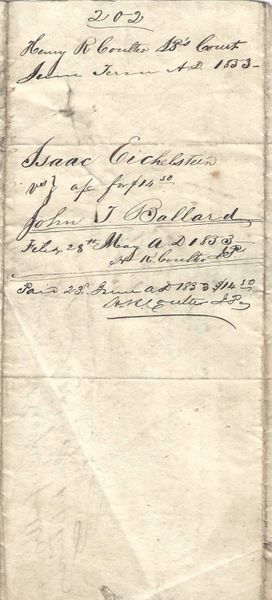 202
Henry R Coulter JP's Court
June Term A.D. 1833
Isaac Eichelstein
vs } a/c for $14.50
John T Ballard
Filed 28th May A D 1833
H R Coulter JP
Paid 23d June A D 1833 $14.50
H R Coulter J P